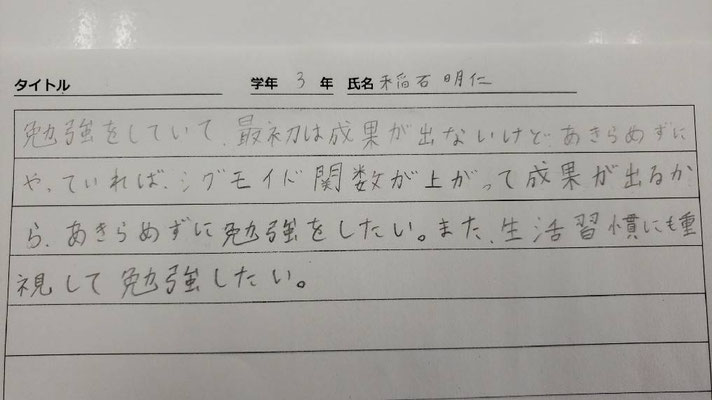 タイトル 学年 3 年 氏名 稲石 明仁
勉強をしていて、最初は成果が出ないけど、あきらめずに
やっていれば、シグモイド関数が上がって成果が出るか
ら、あきらめずに勉強をしたい。また、生活習慣にも重
視して勉強したい。